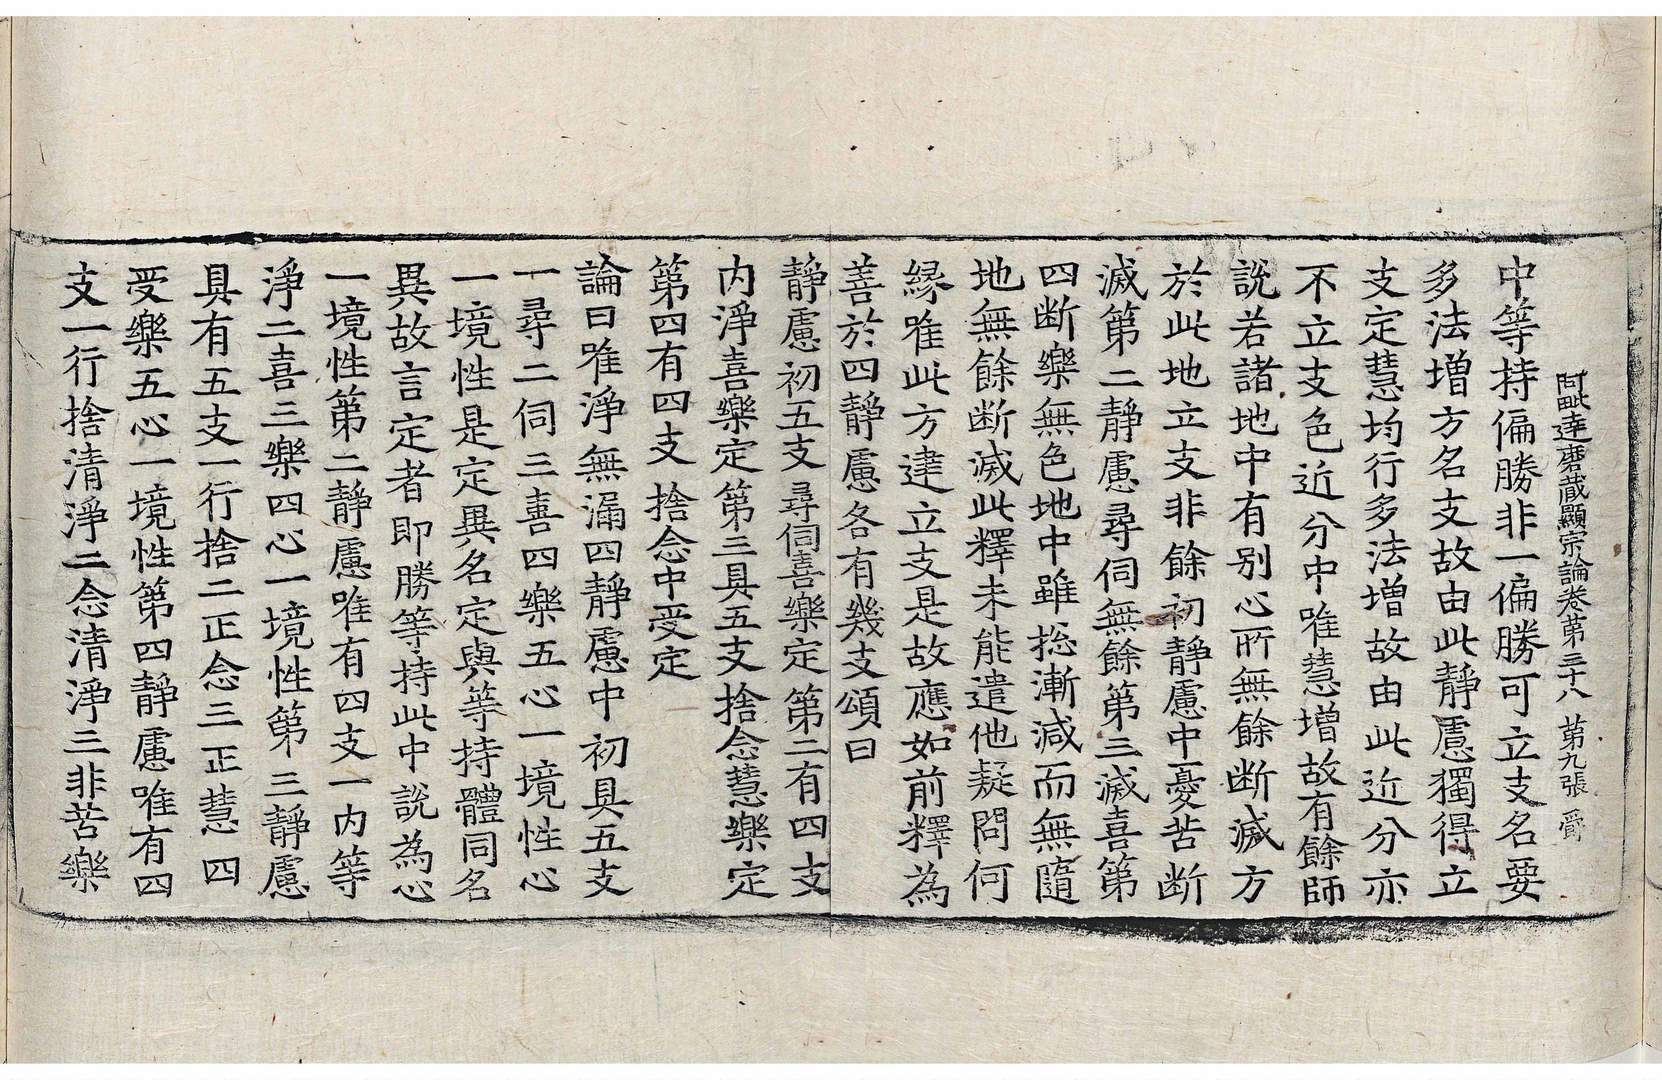 阿毗達磨藏顯宗論卷第三十八 第九張 爵
中等持偏勝非一偏勝可立支名要
多法增方名支故由此靜慮獨得立
支定慧均行多法增故由此近分亦
不立支色近分中唯慧增故有餘師
說若諸地中有别心所無餘断滅方
於此地立支非餘初靜慮中憂苦断
滅第二靜慮尋伺無餘第三滅喜第
四断樂無色地中雖揔漸減而無隨
地無餘断滅此釋未能遣他疑問何
緣唯此方達立支是故應如前釋為
善於四靜慮各有幾支頌曰
靜慮初五支 尋伺喜樂定 第二有四支
内淨喜樂定 第三具五支 捨念慧樂定
第四有四支 捨念中受定
論曰唯淨無漏四靜慮中初具五支
一尋二伺三喜四樂五心一境性心
一境性是定異名定與等持體同名
異故言定者即勝等持此中說為心
一境性第二靜慮唯有四支一内等
淨二喜三樂四心一境性第三靜慮
具有五支一行捨二正念三正慧四
受樂五心一境性第四靜慮唯有四
支一行捨清淨二念清淨三非苦樂